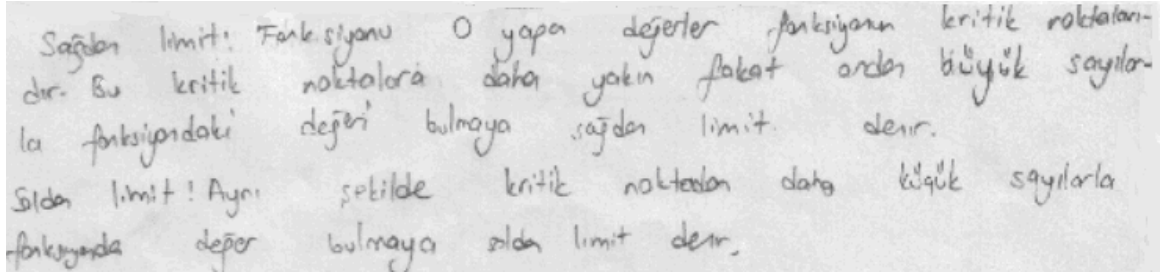 Sağdan limit: Fonksiyonu 0 yapan değerler fonksiyonun kritik noktaları-
dır. Bu kritik noktalara daha yakın fakat ondan büyük sayılar-
la fonksiyondaki değeri bulmaya sağdan limit denir.
Soldan limit: Aynı şekilde kritik noktadan daha küçük sayılarla
fonksiyonda değer bulmaya soldan limit denir.